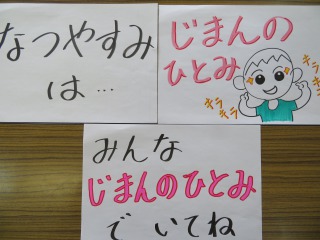 なつやすみ
は…
じまんの
ひとみ
キラ
キラ
キラ
キラ
みんな
じまんのひとみ
で いてね